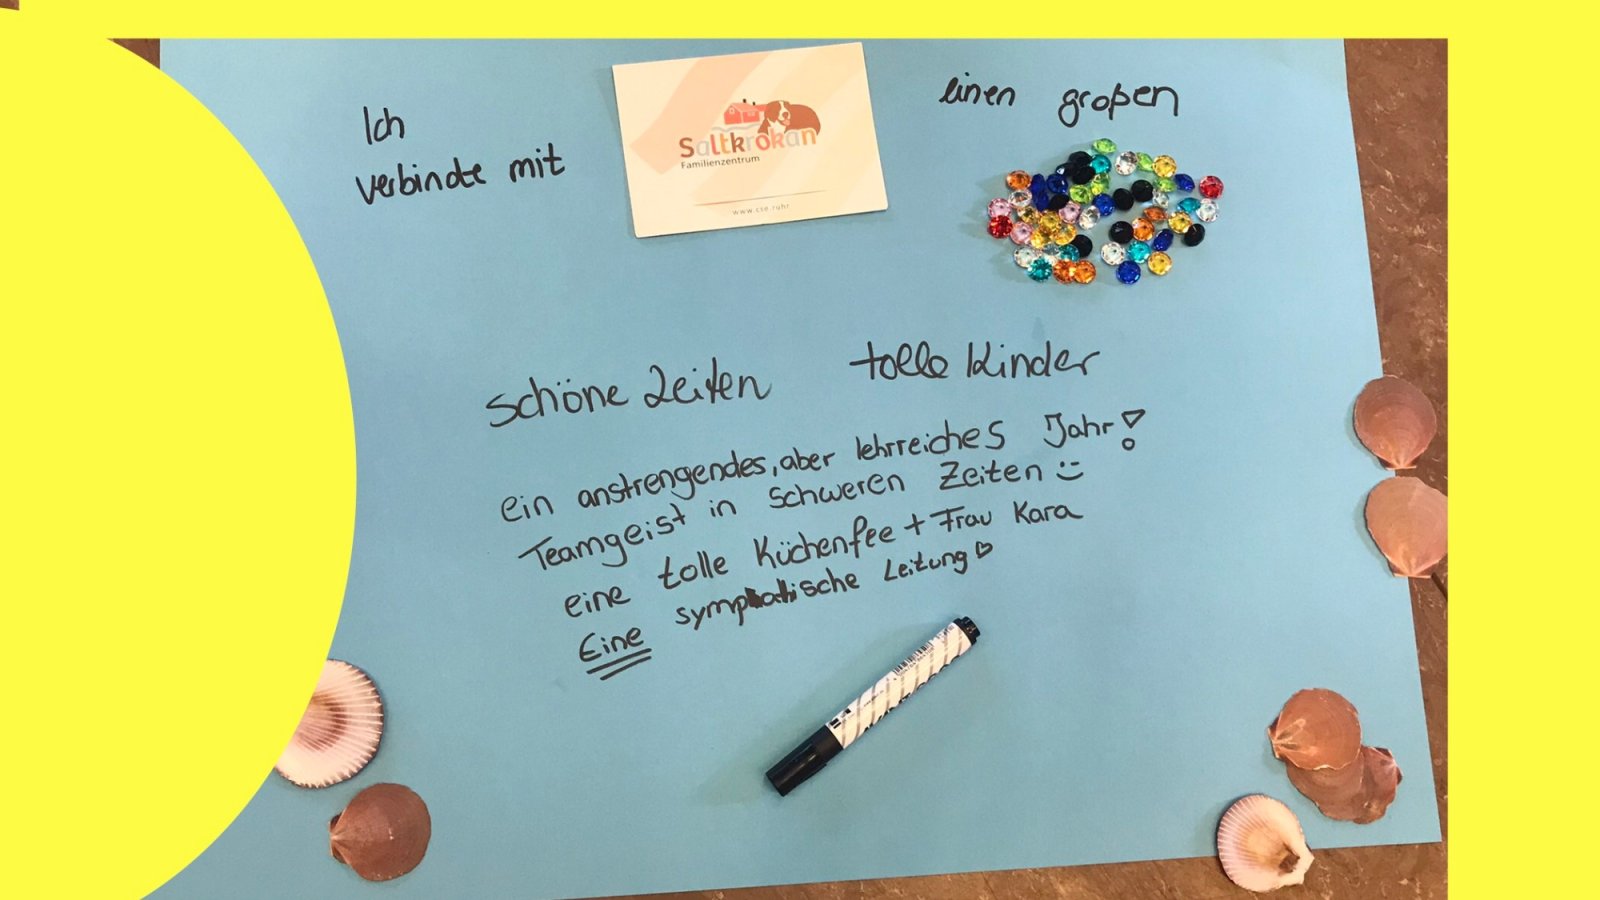 Ich
verbinde mit
Saltkrokan
Familienzentrum
www.cse.ruhr
einen großen
schöne Zeiten
tolle Kinder
ein anstrengendes, aber lehrreiches Jahr!
Teamgeist in schweren Zeiten :)
eine tolle Küchenfee + Frau Kara
Eine symphatische Leitung ♡